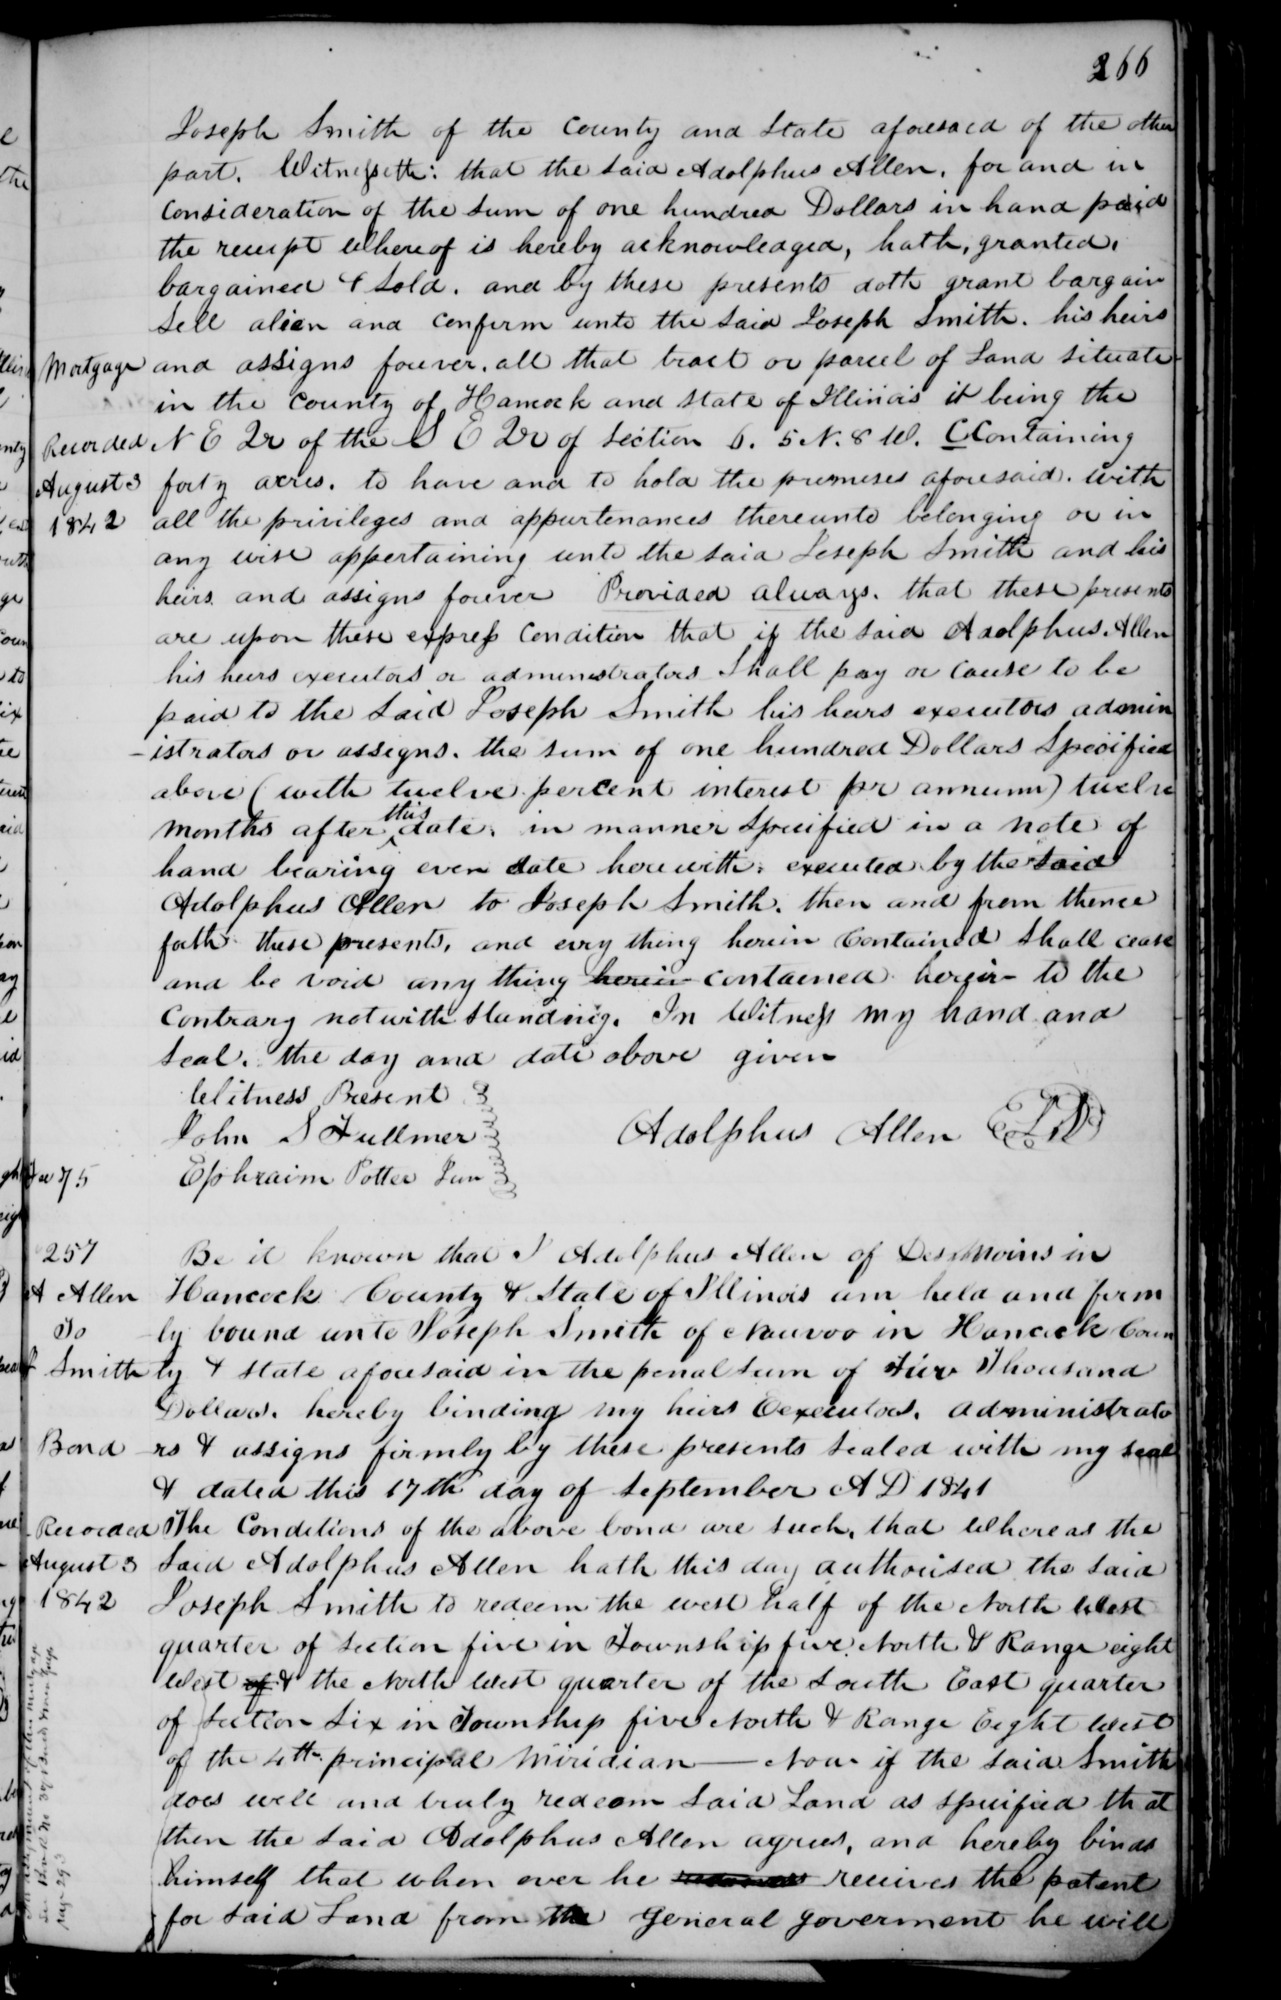 266
Joseph Smith of the County and State aforesaid of the other
part. Witnesseth: that the said Adolphus Allen, for and in
Consideration of the sum of one hundred Dollars in hand paid
the receipt whereof is hereby acknowledged, hath, granted,
bargained & Sold. and by these presents doth grant bargain
Sell alien and Confirm unto the Said Joseph Smith. his heirs
Mortgage and assigns forever. all that tract or parcel of Land situate
in the County of Hancock and state of Illinois it being the
Recorded N E Qr of the S E Qr of Section 6. 5 N. 8 W. Containing
August 3 forty acres. to have and to hold the premeses aforesaid. with
1842 all the privileges and appurtenances thereunto belonging or in
any wise appertaining unto the said Joseph Smith and his
heirs and assigns forever Provided always. that these presents
are upon these express Condition that if the said Adolphus Allen
his heirs executors or administrators Shall pay or Cause to be
paid to the Said Joseph Smith his heirs executors admin
-istrators or assigns. the sum of one hundred Dollars Specified
above (with twelve percent interest pr annum) twelve
months after this date. in manner Specified in a note of
hand bearing even date herewith. executed by the Said
Adolphus Allen to Joseph Smith. then and from thence
forth these presents, and evry thing herein Contained Shall cease
and be void any thing herein contained herein to the
Contrary notwithstanding. In Witness my hand and
Seal. the day and date above given
Witness Present
John S Fullmer Adolphus Allen
Ephraim Potter Jun
Fee 75
257 Be it known that I Adolphus Allen of Desmoins in
A Allen Hancock County & State of Illinois am held and firm
To ly bound unto Joseph Smith of Nauvoo in Hancock Coun
J Smith ty & State aforesaid in the penal Sum of five Thousand
Dollars. hereby binding my heirs Eexecutors. administrato
Bond rs & assigns firmly by these presents Sealed with my seal
& dated this 17th day of September A D 1841
Recorded The Conditions of the above bond are such. that Whereas the
August 3 Said Adolphus Allen hath this day authorised the Said
1842 Joseph Smith to redeem the west half of the North West
quarter of Section five in Township five North & Range eight
West of & the North West quarter of the South East quarter
of Section Six in Township five North & Range Eight West
of the 4th principal Miridian — Now if the said Smith
does well and truly redeem Said Land as specified that
then the Said Adolphus Allen agrees, and hereby binds
himself that when ever he receives the patent
for said Land from the General Goverment he will